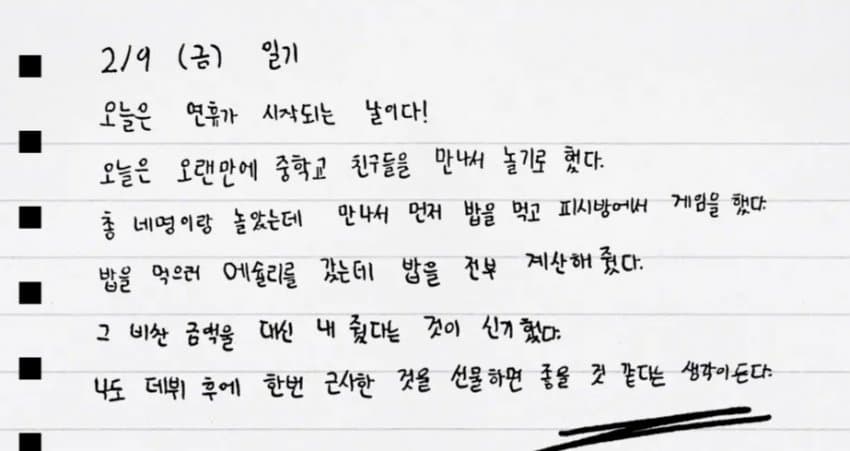 2/9 (금) 일기
오늘은 연휴가 시작되는 날이다!
오늘은 오랜만에 중학교 친구들을 만나서 놀기로 했다.
총 네명이랑 놀았는데 만나서 먼저 밥을 먹고 피시방에서 게임을 했다.
밥을 먹으러 에슐리를 갔는데 밥을 전부 계산해 줬다.
그 비싼 금액을 대신 내 줬다는 것이 신기했다.
나도 데뷔 후에 한번 근사한 것을 선물하면 좋을 것 같다는 생각이든다.